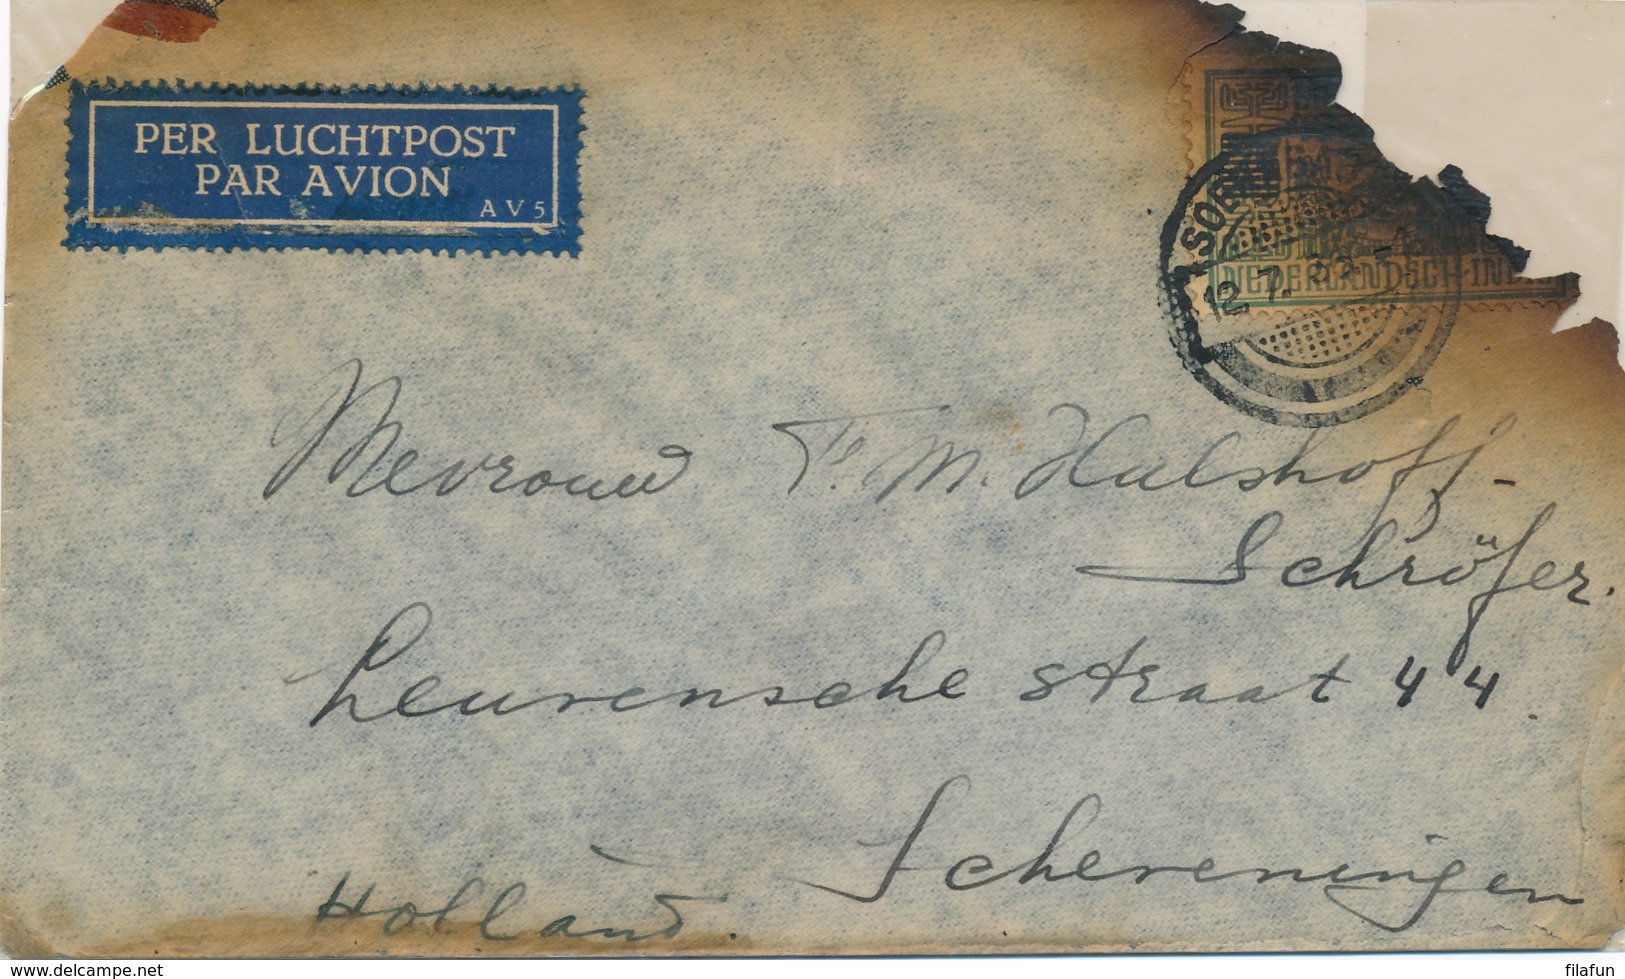 PER LUCHTPOST
PAR AVION
AV5
NEDERLANDSCH-INDIE
12. 7. 35
Mevrouw F. M. Hulshoff-
Schröfer.
Leurensche straat 44.
Scheveningen
Holland.
www.delcampe.net
filafun